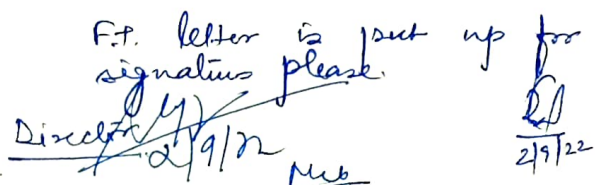 F.P. letter is put up for
signatius please.
Director
2/9/22
2/9/22